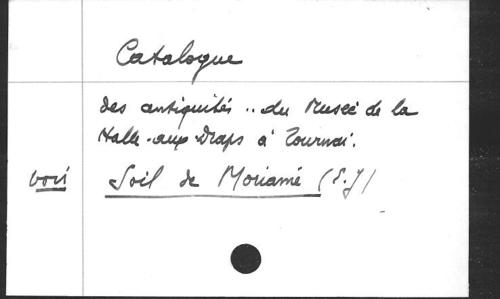 Catalogue
des antiquités .. du Musée de la
Halle-aux-Draps à Tournai.
voir Soil de Moriamé (E.J)